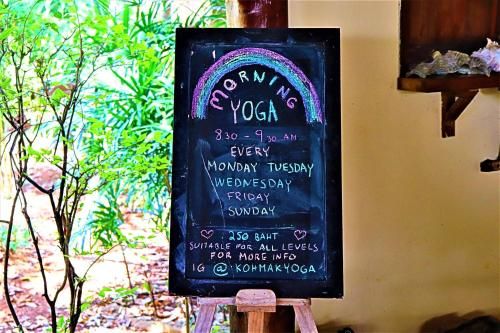 MORNING
YOGA
8:30 - 9:30 AM
EVERY
MONDAY TUESDAY
WEDNESDAY
FRIDAY
SUNDAY
250 BAHT
SUITABLE FOR ALL LEVELS
FOR MORE INFO
IG @ KOHMAKYOGA